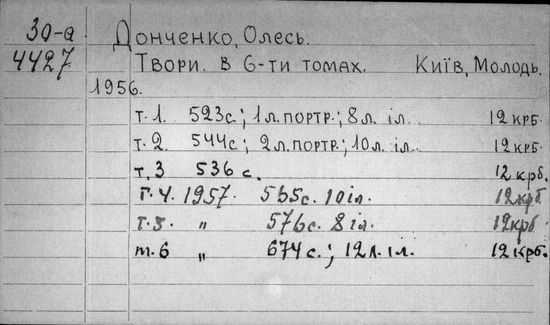 30-а Донченко, Олесь.
4427 Твори. В 6-ти томах. Київ, Молодь.
1956.
т. 1. 523с.; 1 л. портр.; 8 л. іл. 12 крб.
т. 2. 544с.; 2 л. портр.; 10 л. іл. 12 крб.
т. 3 536 с. 12 крб.
т. 4. 1957. 565с. 10 іл. 12 крб
т. 5. „ 576с. 8 іл. 12 крб
т. 6 „ 674 с.; 12 л. іл. 12 крб.